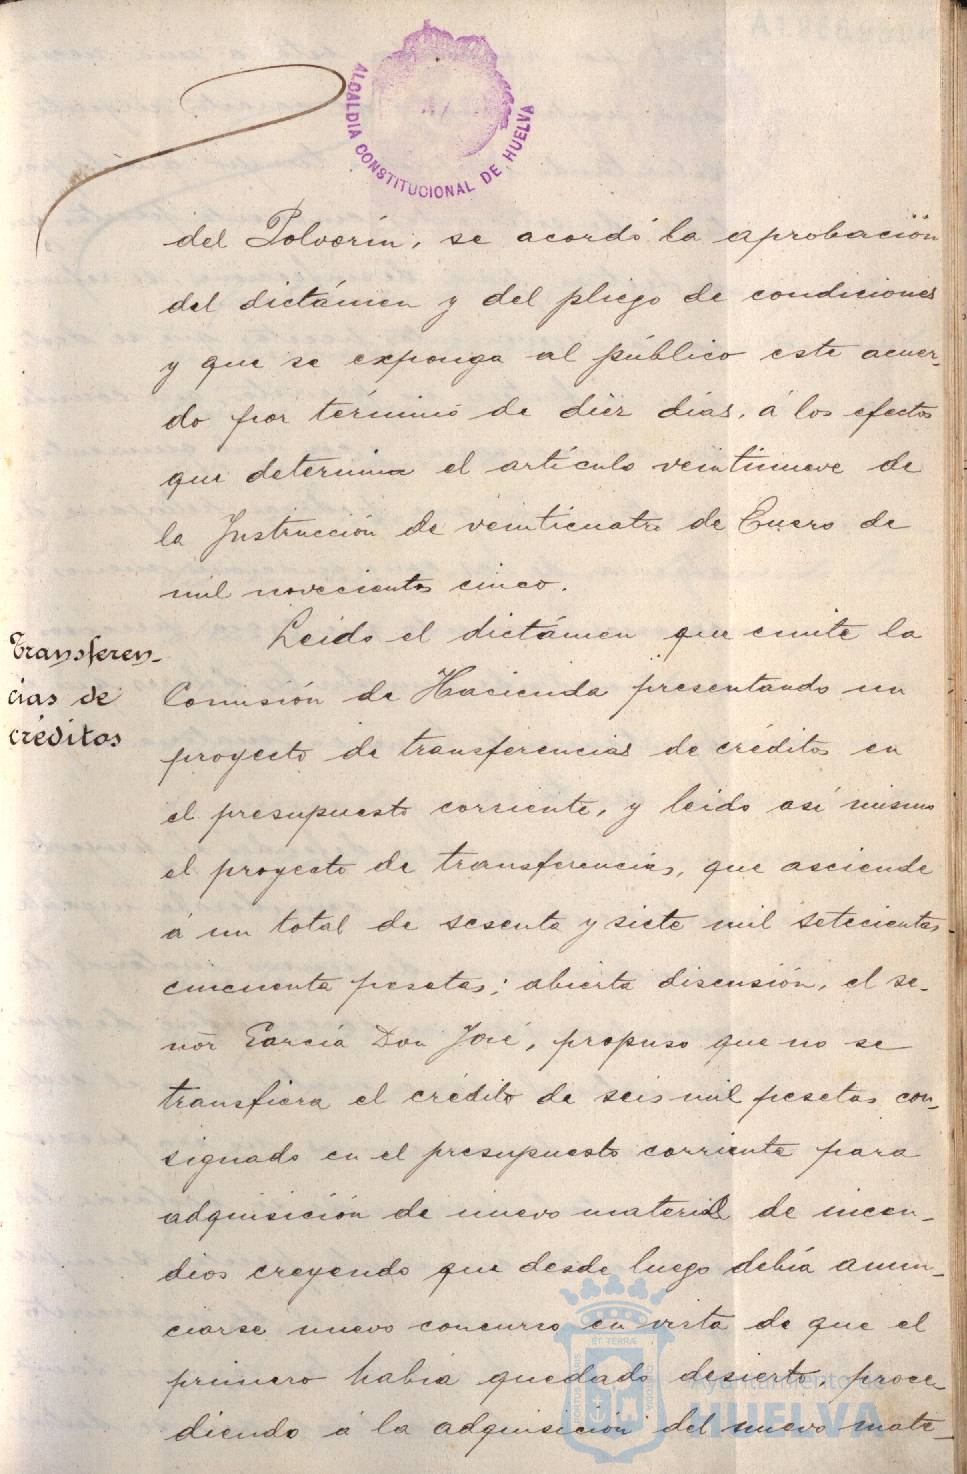 ALCALDIA CONSTITUCIONAL DE HUELVA
del Polvorín, se acordó la aprobación
del dictámen y del pliego de condiciones
y que se exponga al público este acuer-
do por término de diez dias, á los efectos
que determina el artículo veintinueve de
la Instrucción de veinticuatro de Enero de
mil novecientos cinco.
Transferen-
cias de
créditos
Leido el dictámen que emite la
Comisión de Hacienda presentando un
proyecto de transferencias de créditos en
el presupuesto corriente, y leido así mismo
el proyecto de transferencias, que asciende
á un total de sesenta y siete mil setecientas
cincuenta pesetas; abierta discusión, el se-
ñor García Don José, propuso que no se
transfiera el crédito de seis mil pesetas con-
signado en el presupuesto corriente para
adquisición de nuevo material de incen-
dios creyendo que desde luego debía anun-
ciarse nuevo concurso en vista de que el
primero habia quedado desierto, proce-
diendo á la adquisición del nuevo mate-
Ayuntamiento de
HUELVA